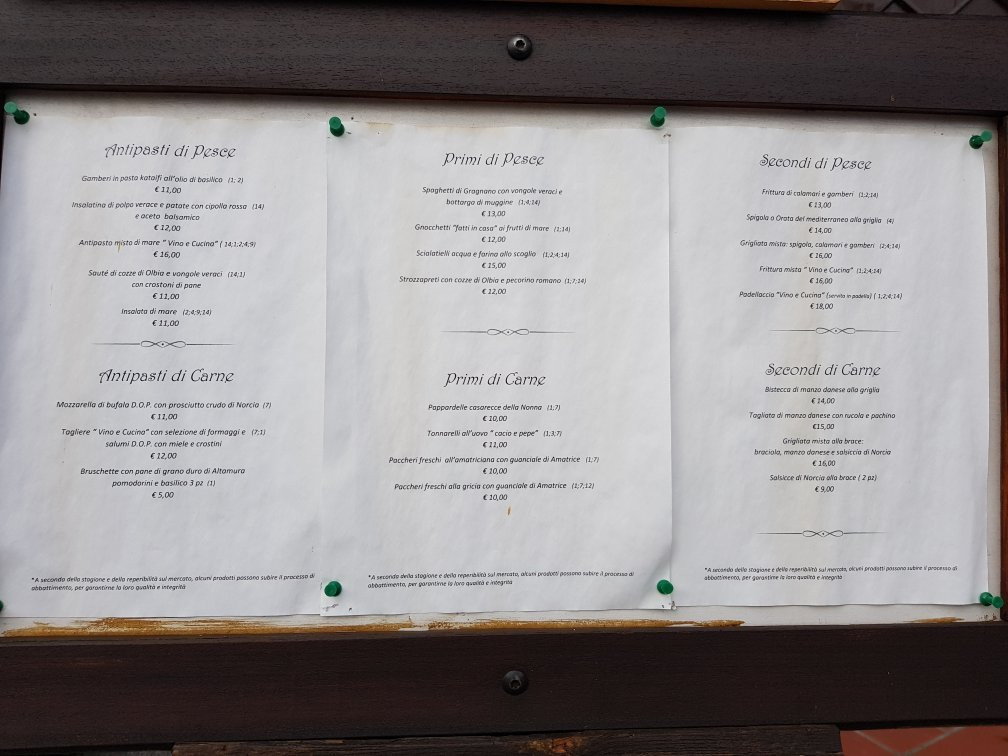 Antipasti di Pesce
Gamberi in pasta kataifi all'olio di basilico (1; 2)
€ 11,00
Insalatina di polpo verace e patate con cipolla rossa (14)
e aceto balsamico
€ 12,00
Antipasto misto di mare " Vino e Cucina" ( 14;1;2;4;9)
€ 16,00
Sauté di cozze di Olbia e vongole veraci (14;1)
con crostoni di pane
€ 11,00
Insalata di mare (2;4;9;14)
€ 11,00
Antipasti di Carne
Mozzarella di bufala D.O.P. con prosciutto crudo di Norcia (7)
€ 11,00
Tagliere " Vino e Cucina" con selezione di formaggi e (7;1)
salumi D.O.P. con miele e crostini
€ 12,00
Bruschette con pane di grano duro di Altamura
pomodorini e basilico 3 pz (1)
€ 5,00
*A seconda della stagione e della reperibilità sul mercato, alcuni prodotti possono subire il processo di
abbattimento, per garantirne la loro qualità e integrità
Primi di Pesce
Spaghetti di Gragnano con vongole veraci e
bottarga di muggine (1;4;14)
€ 13,00
Gnocchetti "fatti in casa" ai frutti di mare (1;14)
€ 12,00
Scialatielli acqua e farina allo scoglio (1;2;4;14)
€ 15,00
Strozzapreti con cozze di Olbia e pecorino romano (1;7;14)
€ 12,00
Primi di Carne
Pappardelle casarecce della Nonna (1;7)
€ 10,00
Tonnarelli all'uovo " cacio e pepe" (1;3;7)
€ 11,00
Paccheri freschi all'amatriciana con guanciale di Amatrice (1;7)
€ 10,00
Paccheri freschi alla gricia con guanciale di Amatrice (1;7;12)
€ 10,00
*A seconda della stagione e della reperibilità sul mercato, alcuni prodotti possono subire il processo di
abbattimento, per garantirne la loro qualità e integrità
Secondi di Pesce
Frittura di calamari e gamberi (1;2;14)
€ 13,00
Spigola o Orata del mediterraneo alla griglia (4)
€ 14,00
Grigliata mista: spigola, calamari e gamberi (2;4;14)
€ 16,00
Frittura mista " Vino e Cucina" (1;2;4;14)
€ 16,00
Padellaccia "Vino e Cucina" (servita in padella) ( 1;2;4;14)
€ 18,00
Secondi di Carne
Bistecca di manzo danese alla griglia
€ 14,00
Tagliata di manzo danese con rucola e pachino
€15,00
Grigliata mista alla brace:
braciola, manzo danese e salsiccia di Norcia
€ 16,00
Salsicce di Norcia alla brace ( 2 pz)
€ 9,00
*A seconda della stagione e della reperibilità sul mercato, alcuni prodotti possono subire il processo di
abbattimento, per garantirne la loro qualità e integrità